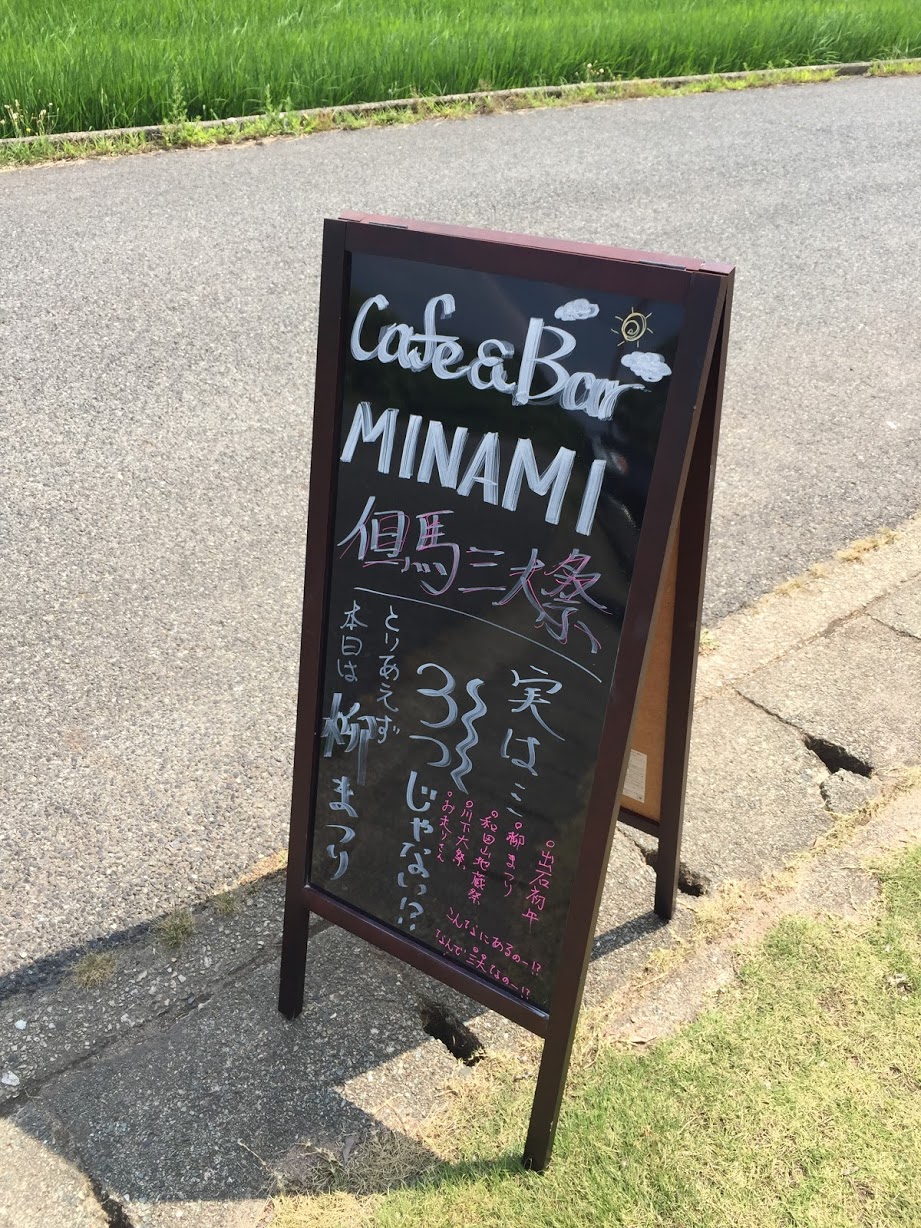 Cafe & Bar
MINAMI
但馬三大祭
実は…
3つじゃない!?
。出石初午
。柳まつり
。和田山地蔵祭
。川下大祭
。お走りさん
こんなにあるのー!?
なんで三大なのー!?
とりあえず
本日は柳まつり